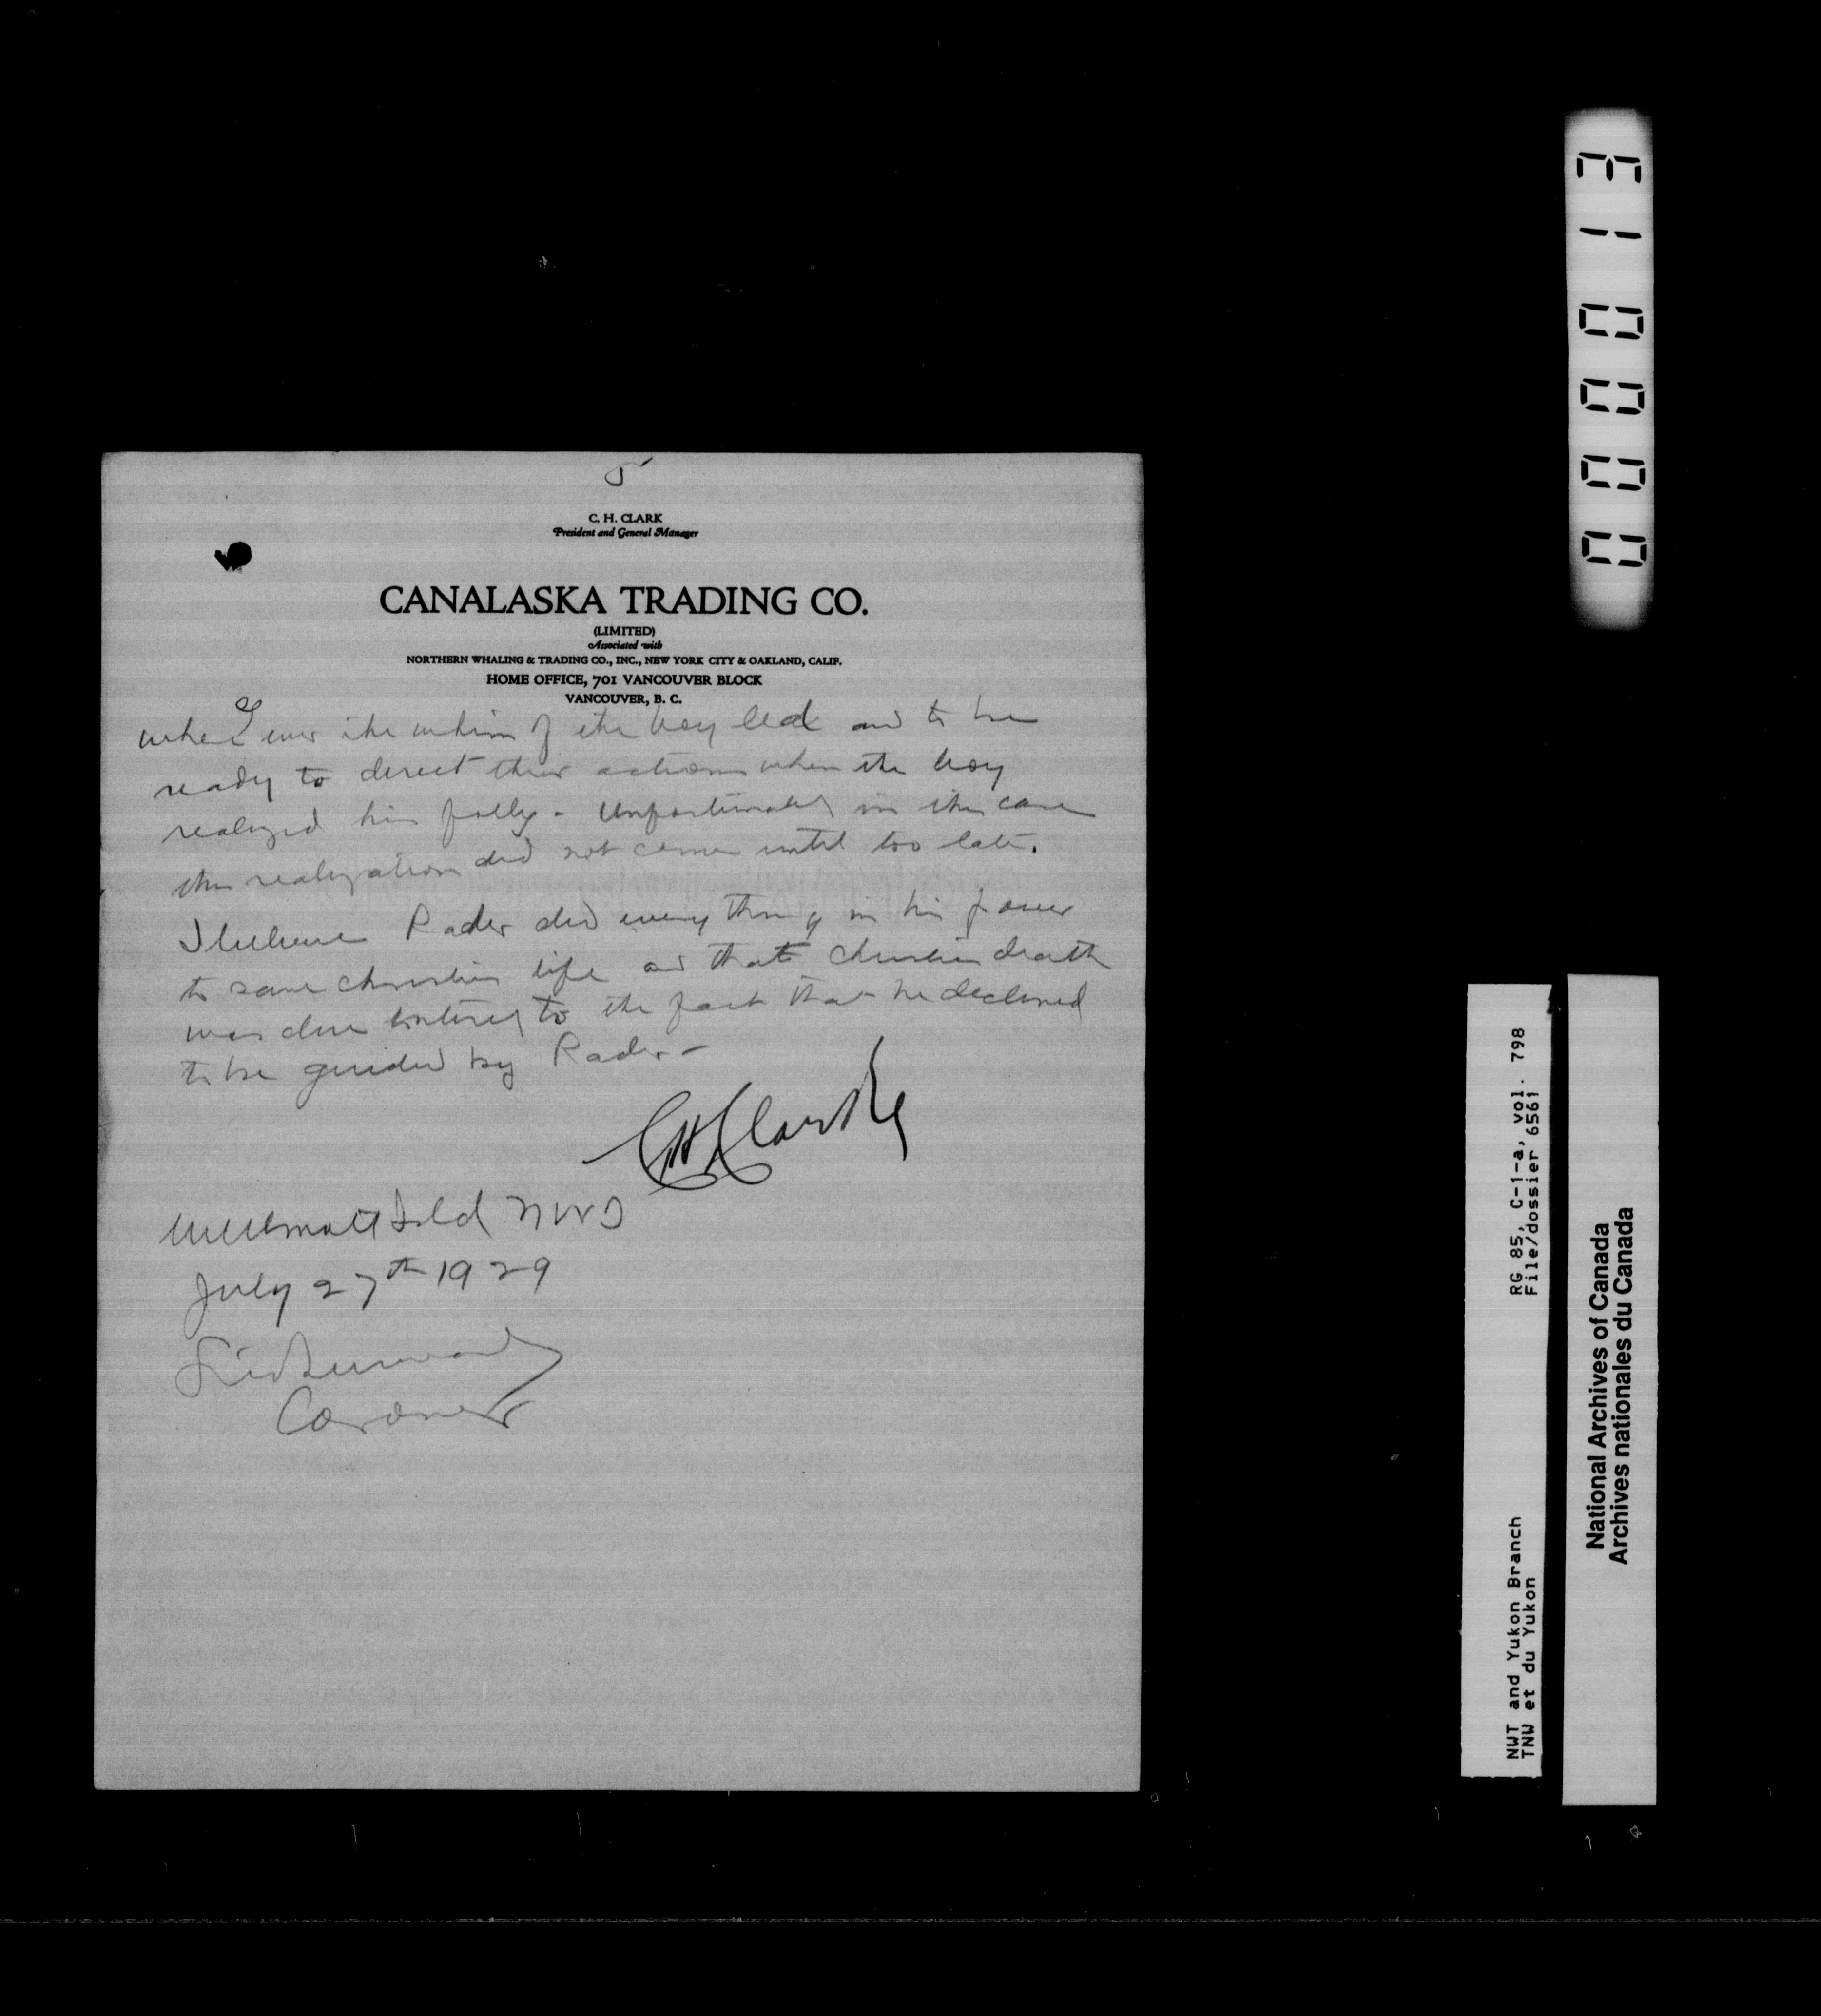 5
C. H. CLARK
President and General Manager
CANALASKA TRADING CO.
(LIMITED)
Associated with
NORTHERN WHALING & TRADING CO., INC., NEW YORK CITY & OAKLAND, CALIF.
HOME OFFICE, 701 VANCOUVER BLOCK
VANCOUVER, B. C.
where ever the whim of the boy led and to be
ready to direct their actions when the boy
realized his folly - Unfortunately in this case
this realization did not come until too late.
I believe Rader did every thing in his power
to save Christies life and that Christies death
was due entirely to the fact that he declined
to be guided by Rader -
CH Clarke
Isld NWT
July 27th 1929
Coroner
310000
RG 85, C-1-a, vol. 798
File/dossier 6561
NWT and Yukon Branch
TNW et du Yukon
National Archives of Canada
Archives nationales du Canada